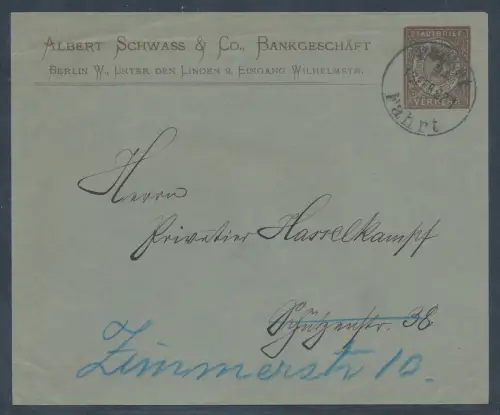 ALBERT SCHWASS & CO., BANKGESCHÄFT
BERLIN W., UNTER DEN LINDEN 2, EINGANG WILHELMSTR.
STADTBRIEF
VERKEHR
Fahrt
Herrn
Privatier Hasselkampf
Schützenstr. 38
Zimmerstr 10.